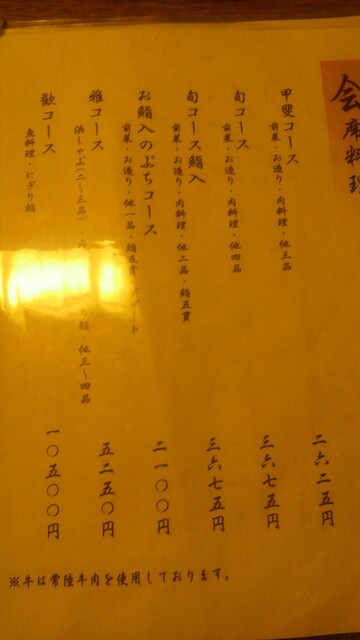 会席料理
甲斐コース
前菜・お造り・肉料理・他三品
二六二五円
旬コース
前菜・お造り・肉料理・他四品
三六七五円
旬コース鮨入
前菜・お造り・肉料理・他二品・鮨五貫
三六七五円
お鮨入のぷちコース
前菜・お造り・他一品・鮨五貫・デザート
二一〇〇円
雅コース
浜しゃぶ(二〜三品)・肉 り鮨・他三〜四品
五二五〇円
歓コース
魚料理・にぎり鮨
一〇五〇〇円
※牛は常陸牛肉を使用しております。